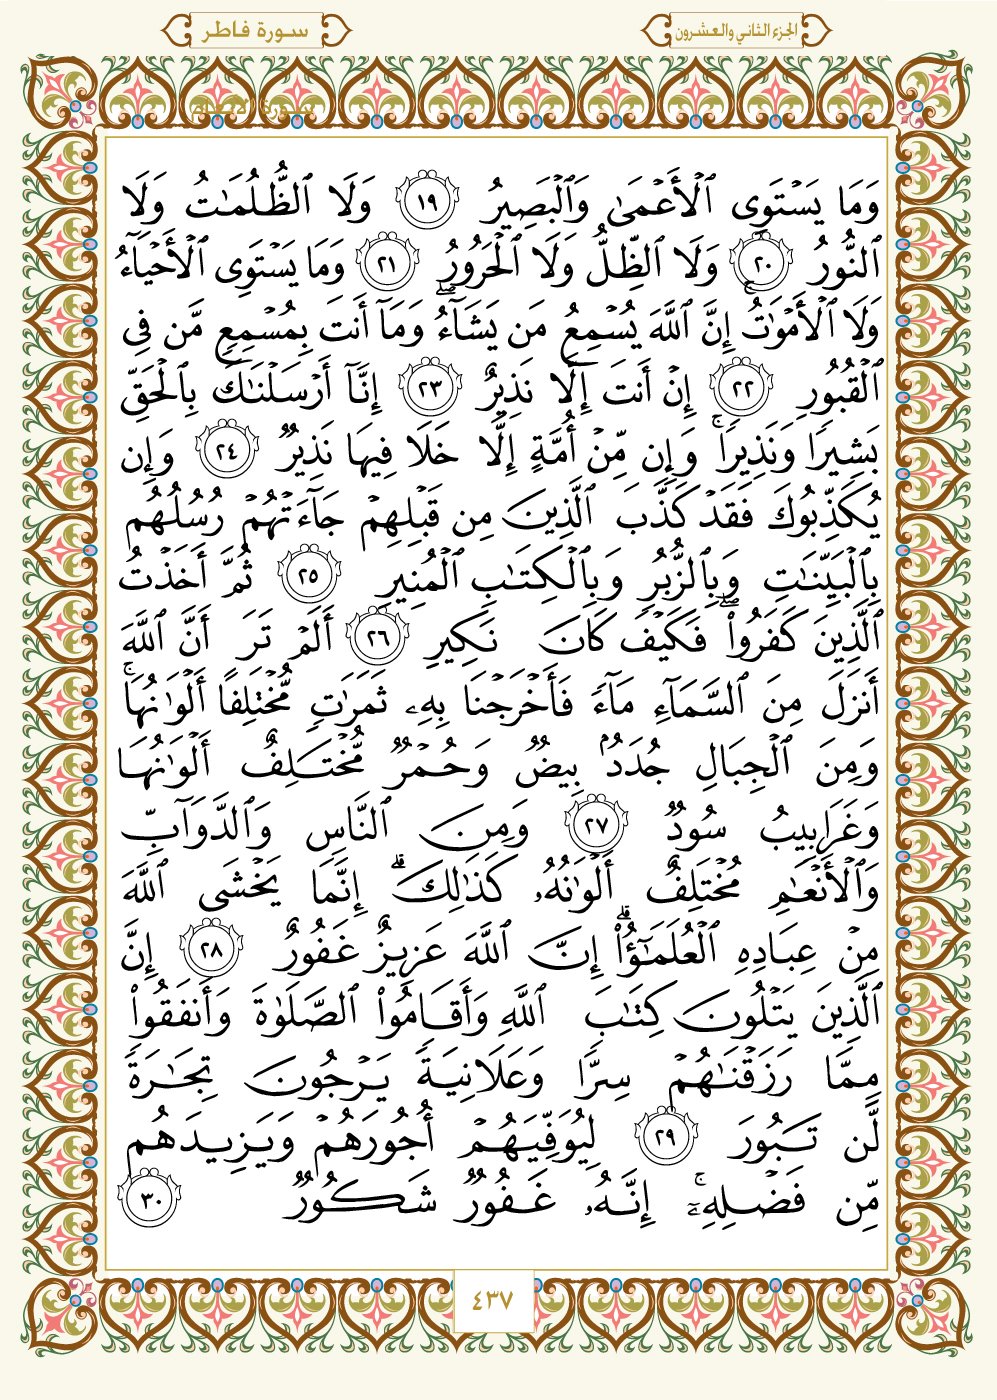 الجزء الثاني والعشرون
سورة فاطر
وَمَا يَسۡتَوِي ٱلۡأَعۡمَىٰ وَٱلۡبَصِيرُ ١٩ وَلَا ٱلظُّلُمَٰتُ وَلَا
ٱلنُّورُ ٢٠ وَلَا ٱلظِّلُّ وَلَا ٱلۡحَرُورُ ٢١ وَمَا يَسۡتَوِي ٱلۡأَحۡيَآءُ
وَلَا ٱلۡأَمۡوَٰتُۚ إِنَّ ٱللَّهَ يُسۡمِعُ مَن يَشَآءُۖ وَمَآ أَنتَ بِمُسۡمِعٖ مَّن فِي
ٱلۡقُبُورِ ٢٢ إِنۡ أَنتَ إِلَّا نَذِيرٌ ٢٣ إِنَّآ أَرۡسَلۡنَٰكَ بِٱلۡحَقِّ
بَشِيرٗا وَنَذِيرٗاۚ وَإِن مِّنۡ أُمَّةٍ إِلَّا خَلَا فِيهَا نَذِيرٞ ٢٤ وَإِن
يُكَذِّبُوكَ فَقَدۡ كَذَّبَ ٱلَّذِينَ مِن قَبۡلِهِمۡ جَآءَتۡهُمۡ رُسُلُهُم
بِٱلۡبَيِّنَٰتِ وَبِٱلزُّبُرِ وَبِٱلۡكِتَٰبِ ٱلۡمُنِيرِ ٢٥ ثُمَّ أَخَذۡتُ
ٱلَّذِينَ كَفَرُواْۖ فَكَيۡفَ كَانَ نَكِيرِ ٢٦ أَلَمۡ تَرَ أَنَّ ٱللَّهَ
أَنزَلَ مِنَ ٱلسَّمَآءِ مَآءٗ فَأَخۡرَجۡنَا بِهِۦ ثَمَرَٰتٖ مُّخۡتَلِفًا أَلۡوَٰنُهَاۚ
وَمِنَ ٱلۡجِبَالِ جُدَدُۢ بِيضٞ وَحُمۡرٞ مُّخۡتَلِفٌ أَلۡوَٰنُهَا
وَغَرَابِيبُ سُودٞ ٢٧ وَمِنَ ٱلنَّاسِ وَٱلدَّوَآبِّ
وَٱلۡأَنۡعَٰمِ مُخۡتَلِفٌ أَلۡوَٰنُهُۥ كَذَٰلِكَۗ إِنَّمَا يَخۡشَى ٱللَّهَ
مِنۡ عِبَادِهِ ٱلۡعُلَمَٰٓؤُاْۗ إِنَّ ٱللَّهَ عَزِيزٌ غَفُورٌ ٢٨ إِنَّ
ٱلَّذِينَ يَتۡلُونَ كِتَٰبَ ٱللَّهِ وَأَقَامُواْ ٱلصَّلَوٰةَ وَأَنفَقُواْ
مِمَّا رَزَقۡنَٰهُمۡ سِرّٗا وَعَلَانِيَةٗ يَرۡجُونَ تِجَٰرَةٗ
لَّن تَبُورَ ٢٩ لِيُوَفِّيَهُمۡ أُجُورَهُمۡ وَيَزِيدَهُم
مِّن فَضۡلِهِۦٓۚ إِنَّهُۥ غَفُورٞ شَكُورٞ ٣٠
٤٣٧